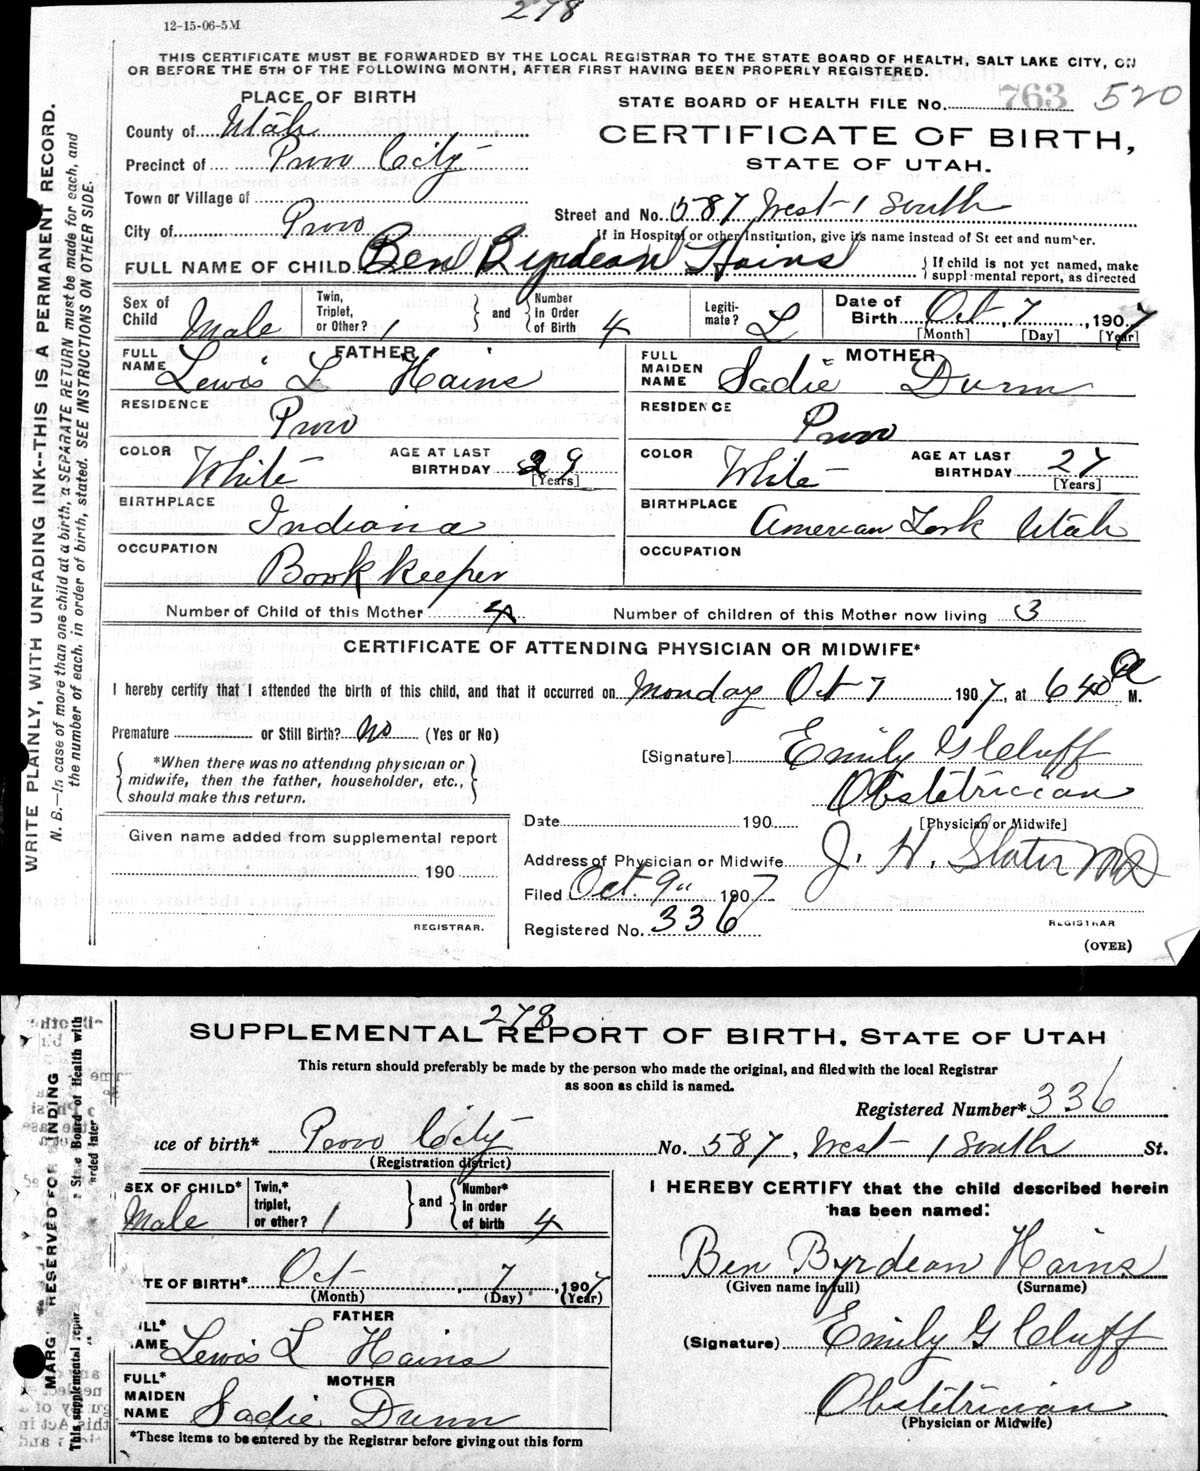 278
12-15-06-5M
THIS CERTIFICATE MUST BE FORWARDED BY THE LOCAL REGISTRAR TO THE STATE BOARD OF HEALTH, SALT LAKE CITY, ON
OR BEFORE THE 5TH OF THE FOLLOWING MONTH, AFTER FIRST HAVING BEEN PROPERLY REGISTERED.
WRITE PLAINLY, WITH UNFADING INK--THIS IS A PERMANENT RECORD.
N. B.—In case of more than one child at a birth, a SEPARATE RETURN must be made for each, and
the number of each. in order of birth, stated. SEE INSTRUCTIONS ON OTHER SIDE.
PLACE OF BIRTH
County of Utah
Precinct of Provo City
Town or Village of
City of Provo
STATE BOARD OF HEALTH FILE No. 763 520
CERTIFICATE OF BIRTH,
STATE OF UTAH.
Street and No. 587 West 1 South
If in Hospital or other Institution, give it's name instead of St eet and number.
FULL NAME OF CHILD. Ben Byrdean Hains
{ If child is not yet named, make
suppl·mental report, as directed
Sex of Child Male
Twin, Triplet, or Other? 1
and
Number in Order of Birth 4
Legitimate? L
Date of Birth Oct 7, 1907
[Month] [Day] [Year]
FATHER
FULL NAME Lewis L Hains
RESIDENCE Provo
COLOR White
AGE AT LAST BIRTHDAY 29
[Years]
BIRTHPLACE Indiana
OCCUPATION Bookkeeper
MOTHER
FULL MAIDEN NAME Sadie Dunn
RESIDENCE Provo
COLOR White
AGE AT LAST BIRTHDAY 27
[Years]
BIRTHPLACE American Fork Utah
OCCUPATION
Number of Child of this Mother 4 Number of children of this Mother now living 3
CERTIFICATE OF ATTENDING PHYSICIAN OR MIDWIFE*
I hereby certify that I attended the birth of this child, and that it occurred on Monday Oct 7 1907, at 640 a M.
Premature or Still Birth? No (Yes or No)
*When there was no attending physician or
midwife, then the father, householder, etc.,
should make this return.
[Signature] Emily G Cluff
Obstetrician
[Physician or Midwife]
Given name added from supplemental report
190
REGISTRAR.
Date 190
Address of Physician or Midwife
Filed Oct. 9" 1907
Registered No. 336
J. H. Slater MD
REGISTRAR
(OVER)
278
SUPPLEMENTAL REPORT OF BIRTH, STATE OF UTAH
This return should preferably be made by the person who made the original, and filed with the local Registrar
as soon as child is named.
Registered Number* 336
ce of birth* Provo City No. 587, West 1 South St.
(Registration district)
SEX OF CHILD* Male
Twin,* triplet, or other? 1
and
Number* in order of birth 4
TE OF BIRTH* Oct 7, 1907
(Month) (Day) (Year)
FATHER
LL* AME Lewis L Hains
MOTHER
FULL* MAIDEN NAME Sadie Dunn
*These items to be entered by the Registrar before giving out this form
I HEREBY CERTIFY that the child described herein
has been named:
Ben Byrdean Hains
(Given name in full) (Surname)
(Signature) Emily G Cluff
Obstetrician
(Physician or Midwife)
MARG RESERVED FOR INDING
This supplemental repor State Board of Health with
arded later